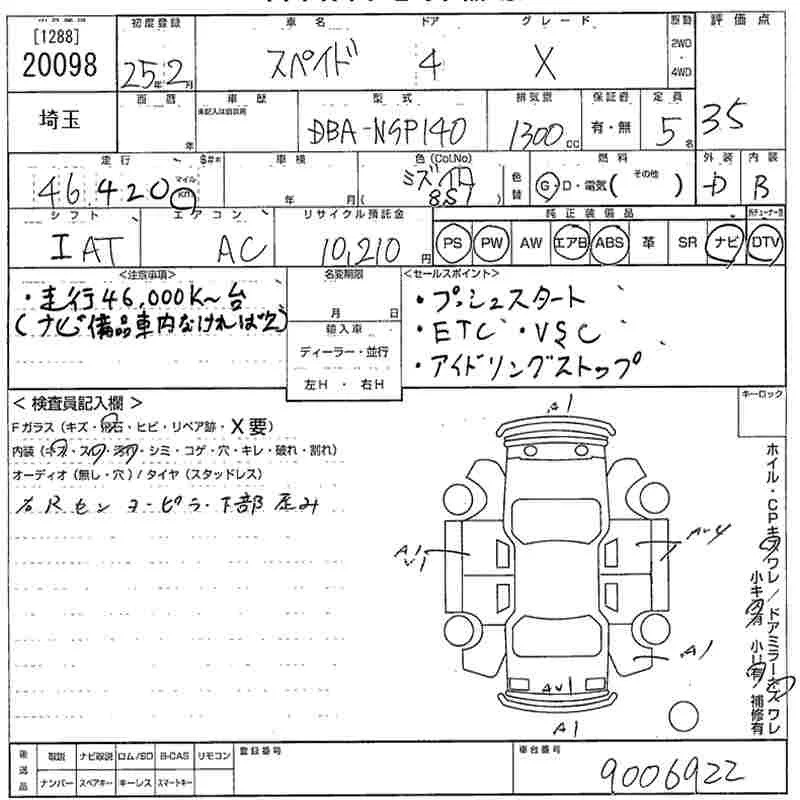 [1288]
20098
初度登録
25年2月
車名
スペイド
ドア
4
グレード
X
駆動
2WD
・
4WD
評価点
3.5
埼玉
西暦
年
車歴
未記入は自家用
型式
DBA-NSP140
排気量
1300cc
保証書
有・無
定員
5名
走行
46,420
マイル
Km
S#=
車検
年 月
色(Col.No)
ミズイロ
(8S1)
色替
燃料
G・D・電気( その他 )
外装
D
内装
B
シフト
IAT
エアコン
AC
リサイクル預託金
10,210円
純正装備品
PS PW AW エアB ABS 革 SR ナビ DTV
<注意事項>
・走行46,000K~台
(ナビ備品車内なければ欠)
名変期限
月 日
輸入車
ディーラー・並行
左H・右H
<セールスポイント>
・プッシュスタート
・ETC・VSC
・アイドリングストップ
<検査員記入欄>
Fガラス(キズ・飛石・ヒビ・リペア跡・X要)
内装(キズ・スレ・汚れ・シミ・コゲ・穴・キレ・破れ・割れ)
オーディオ(無し・穴)/タイヤ(スタッドレス)
右Rセンターピラー下部歪み
キーロック
A1
A1
U1
AU4
A1
AU1
A1
ホイル・CPキズワレ/ドアミラーキズワレ
小キズ有 小U有 補修有
後送品
取説 ナビ取説 ロム/SD B-CAS リモコン
ナンバー スペアキー キーレス スマートキー
登録番号
車台番号
9006922